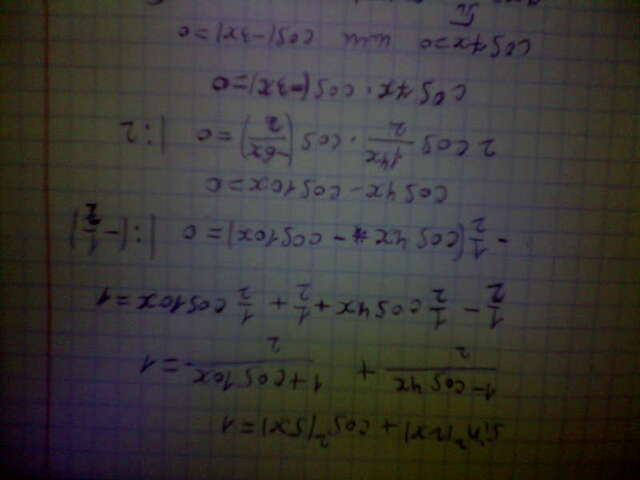 sin²(2x) + cos²(5x) = 1
1 - cos4x / 2 + 1 + cos10x / 2 = 1
1/2 - 1/2 cos4x + 1/2 + 1/2 cos10x = 1
- 1/2 (cos4x - cos10x) = 0 | : (- 1/2)
cos4x - cos10x = 0
2 cos 14x/2 · cos (-6x/2) = 0 | : 2
cos 7x · cos (-3x) = 0
cos 7x = 0 или cos (-3x) = 0